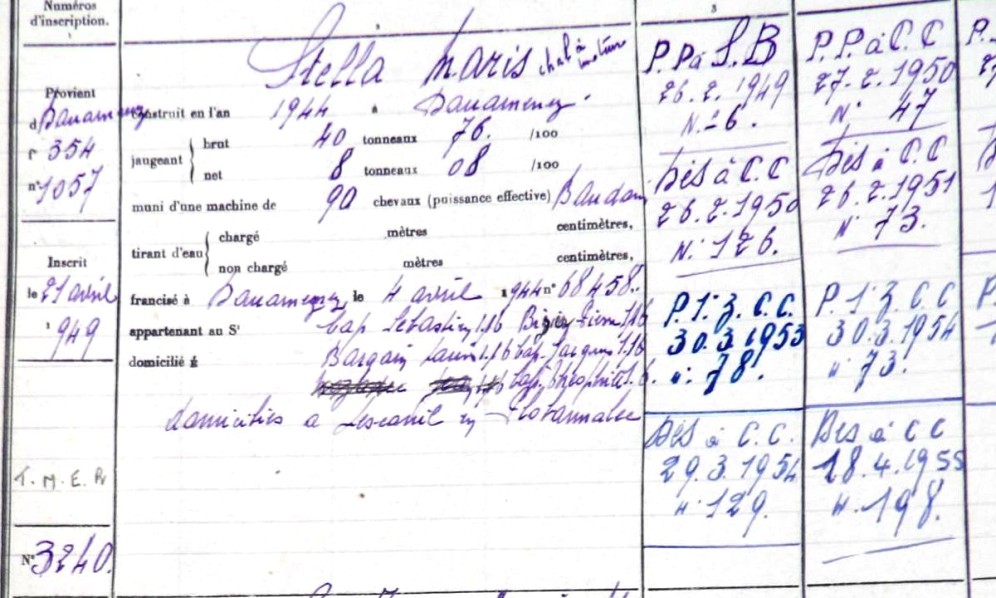 Numéros
d'inscription.
Provient
d Douarnenez
f° 354
n° 1057
Inscrit
le 21 avril
1949
T.M.E.R
N° 3240.
Stella Maris chal à moteur
Construit en l'an 1944 à Douarnenez.
jaugeant { brut 40 tonneaux 76. /100
net 8 tonneaux 08 /100
muni d'une machine de 90 chevaux (puissance effective) Baudoin
tirant d'eau { chargé mètres centimètres,
non chargé mètres centimètres,
francisé à Douarnenez le 4 avril 1944 n° 68458.
appartenant au Sr Cap Sébastien 1.16 Pierre 1.16
domicilié à Bargain 1.16 Cap. Jacques 1.16
Cap. Théophile
domiciliés à Lesconil en Plobannalec
3
P.P à S.B
26.2.1949
N.: 6.
Dés à C.C
26.2.1950
N.: 126.
P. 1° 3. C.C.
30.3.1953
n: 78.
Dés à C.C.
29.3.1954
n: 129.
P.P. à C.C
27.2.1950
N° 47
Dés à C.C
26.2.1951
N° 73.
P. 1° 3. C.C
30.3.1954
n 73.
Dés à C C
18.4.1955
n. 198.